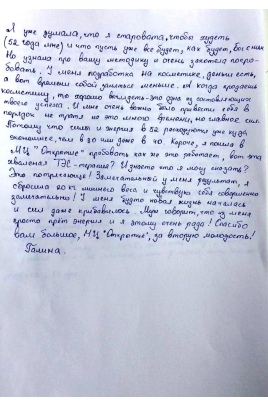 Я уже думала, что я старовата, чтобы худеть
(52 года мне) и что пусть уже всё будет, как будет, бог с ним.
Но узнала про вашу методику и очень захотела попро-
бовать. У меня подработка на косметике, деньги есть,
а вот времени собой заняться меньше. А когда продаешь
косметику, то хорошо выглядеть - это одна из составляющих
твоего успеха. И мне очень важно было привести себя в
порядок не тратя на это много времени, но главное сил.
Потому что силы и энергия в 52 расходуются уже куда
экономнее, чем в 30 или даже в 40. Короче, я пошла в
МЦ "Открытие" пробовать как же это работает, вот эта
хваленая ТЭС-терапия? И знаете что я могу сказать?
Это потрясающе! Замечательный у меня результат, я
сбросила 20 кг лишнего веса и чувствую себя совершенно
замечательно! У меня будто новая жизнь началась
и сил даже прибавилось. Муж говорит, что из меня
просто прёт энергия и я этому очень рада! Спасибо
вам большое, МЦ "Открытие", за вторую молодость!
Галина.